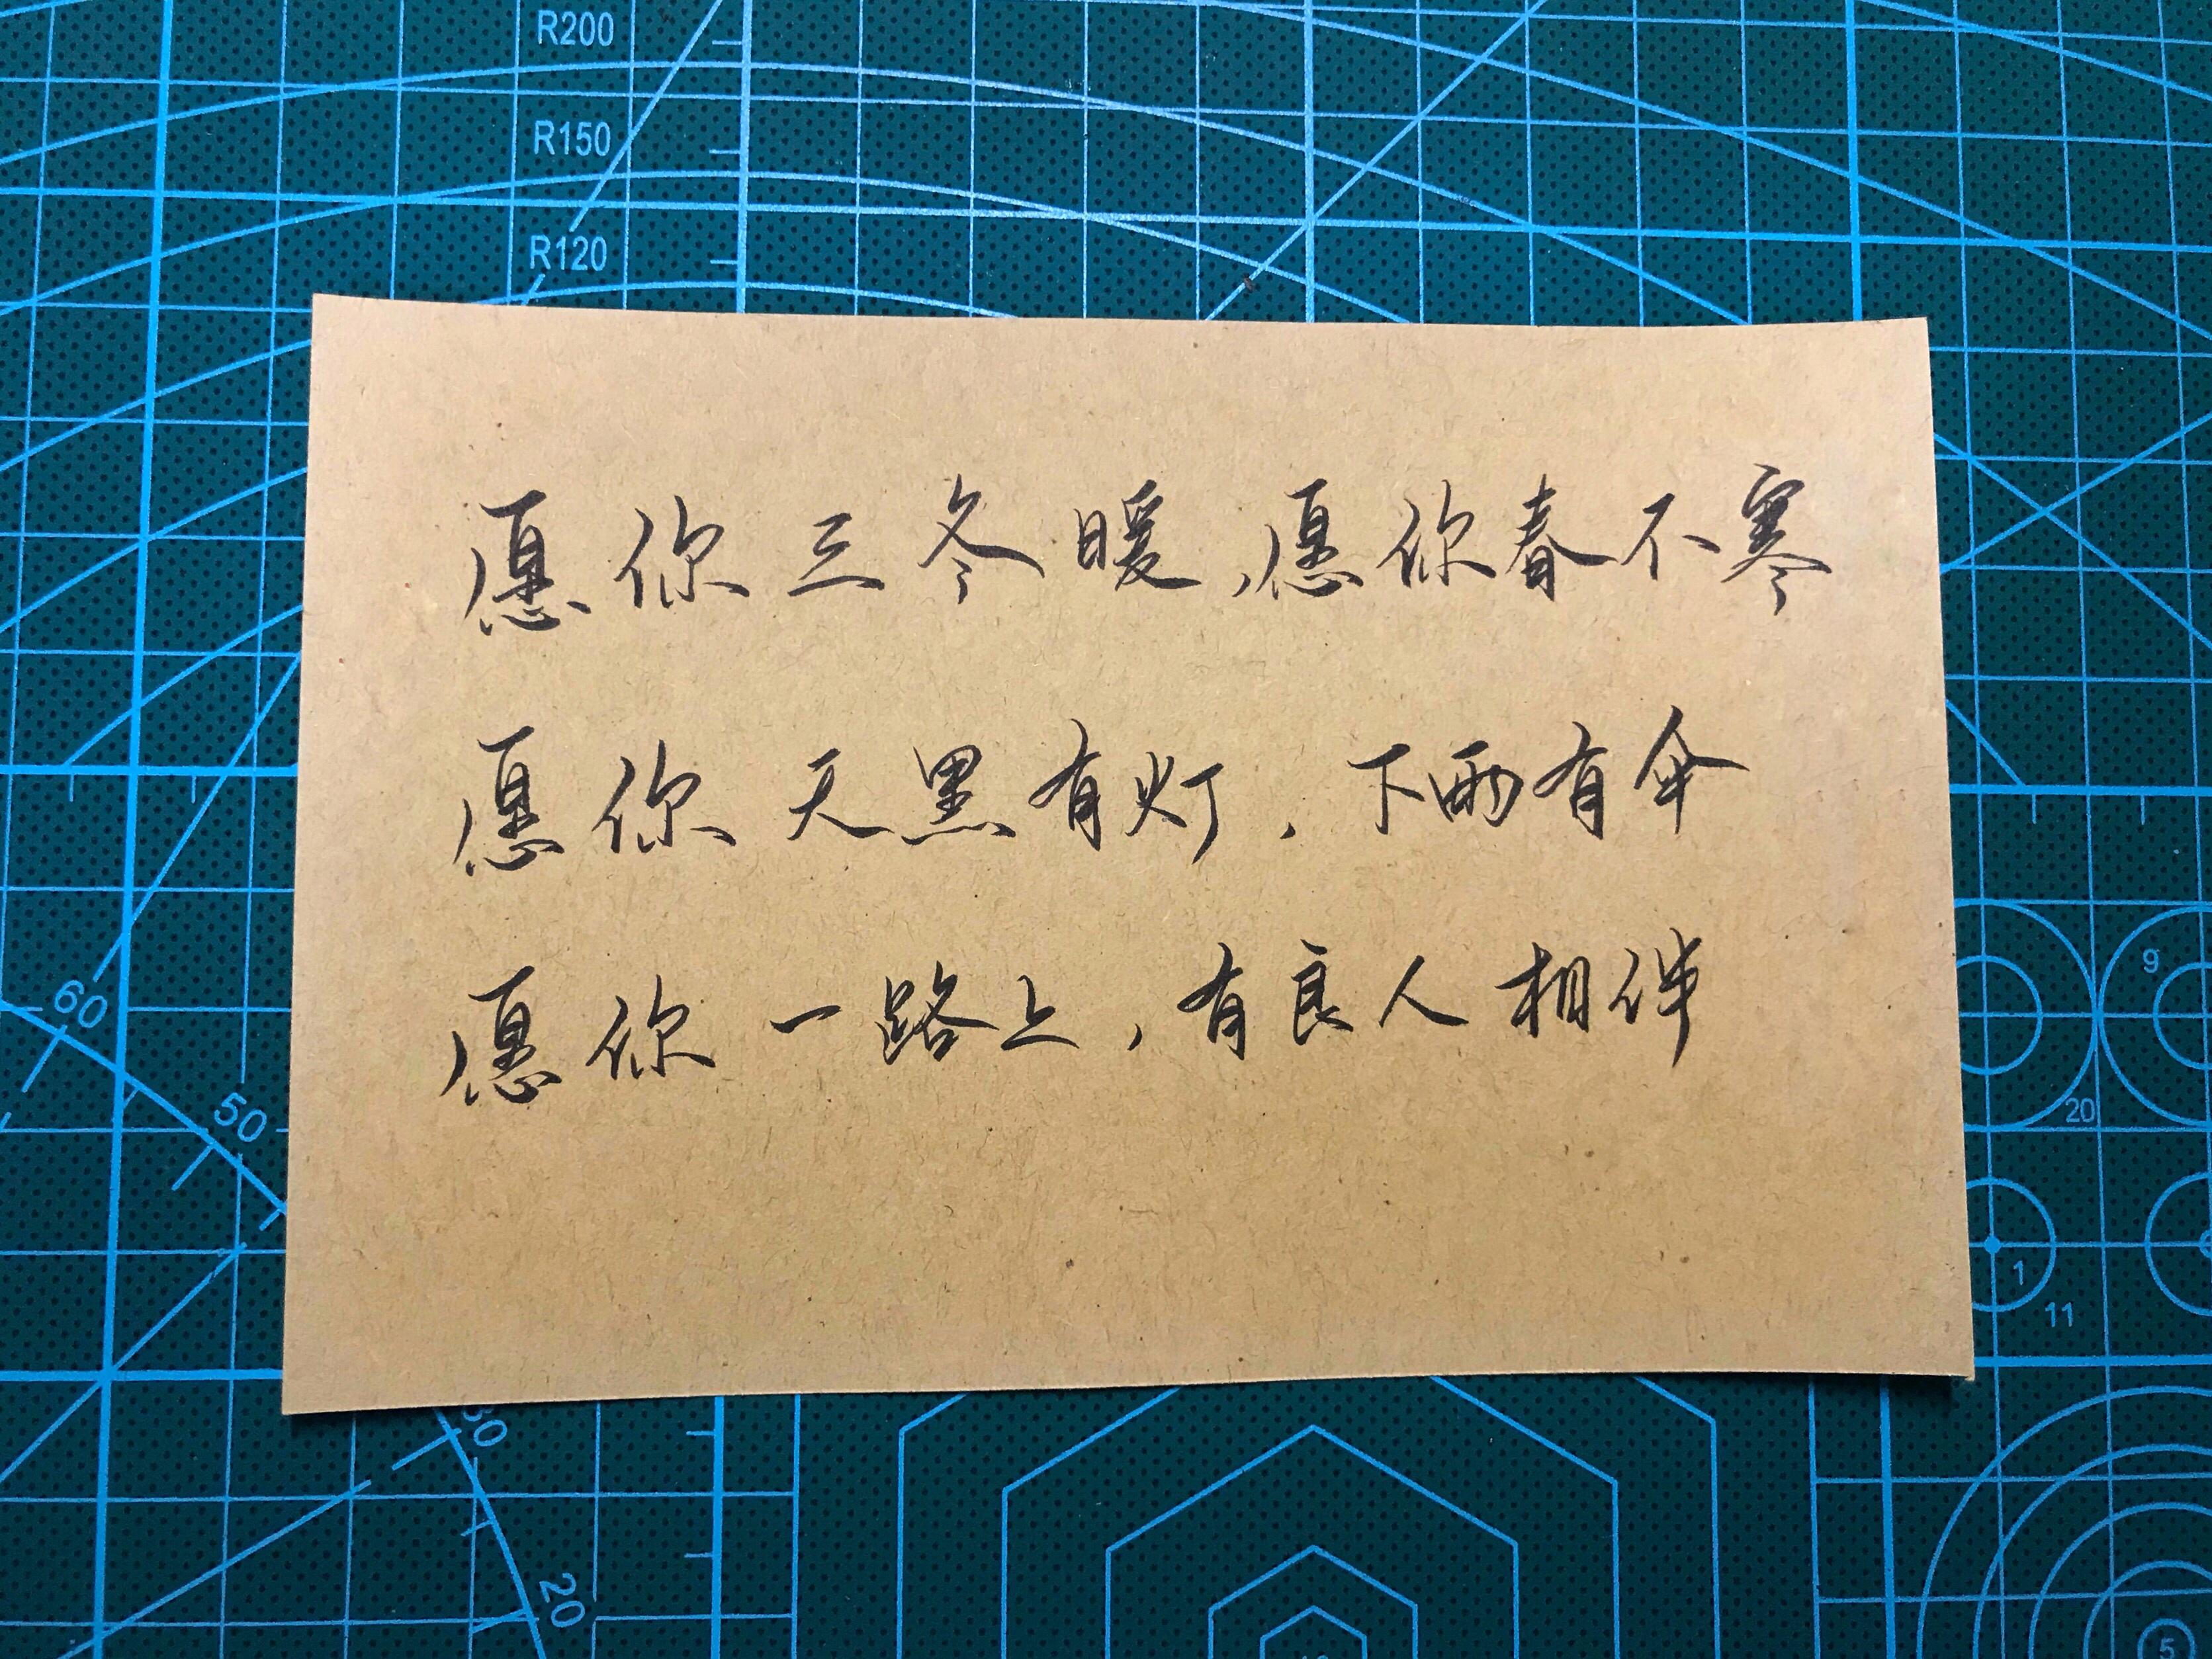 R200
R150
R120
愿你三冬暖,愿你春不寒
愿你天黑有灯,下雨有伞
愿你一路上,有良人相伴
60
50
30
20
9
20
1
11
5